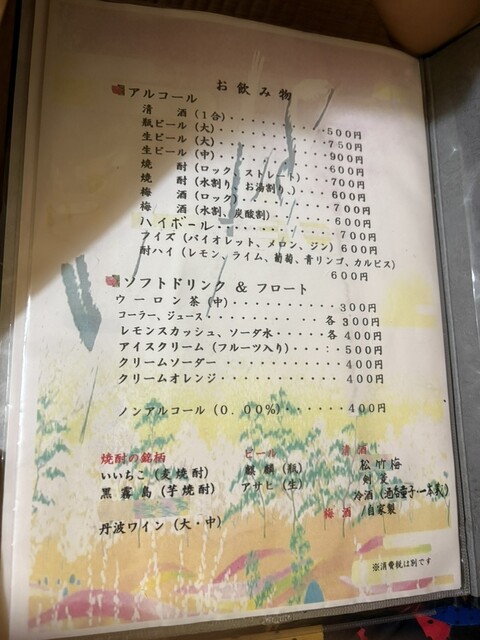 お飲み物
アルコール
清　　酒（１合）・・・・・・・・・・500円
瓶ビール（大）・・・・・・・・・・750円
生ビール（大）・・・・・・・・・・900円
生ビール（中）・・・・・・・・・・600円
焼　　酎（ロック、ストレート）・・・700円
焼　　酎（水割り、お湯割り、）・・・600円
梅　　酒（ロック）・・・・・・・・700円
梅　　酒（水割、炭酸割）・・・・・600円
ハイボール・・・・・・・・・・・700円
フィズ（バイオレット、メロン、ジン）600円
酎ハイ（レモン、ライム、葡萄、青リンゴ、カルピス）
600円
ソフトドリンク ＆ フロート
ウーロン茶（中）・・・・・・・・・・300円
コーラー、ジュース・・・・・・・・・・各300円
レモンスカッシュ、ソーダ水・・・・・各400円
アイスクリーム（フルーツ入り）・・・：・500円
クリームソーダー・・・・・・・・・・400円
クリームオレンジ・・・・・・・・・・400円
ノンアルコール（0．00％）・・・・・・400円
焼酎の銘柄
いいちこ（麦焼酎）
黒霧島（芋焼酎）
丹波ワイン（大・中）
ビール
麒麟（瓶）
アサヒ（生）
清酒
松竹梅
剣菱
冷酒（酒呑童子・一本義）
梅酒／自家製
※消費税は別です